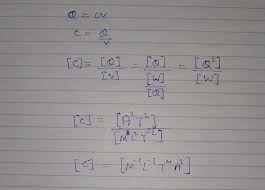 Q = CV
C = Q/V
[C] = [Q]/[V] = [Q]/([W]/[Q]) = [Q²]/[W]
[C] = [A²T²]/[M¹L²T⁻²]
[C] = [M⁻¹L⁻²T⁴A²]